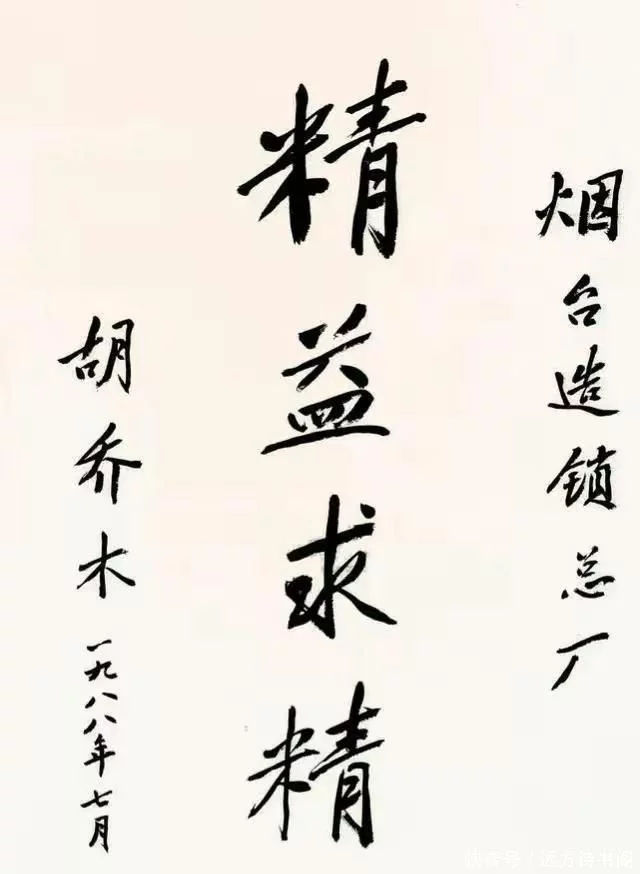 烟台造锁总厂
精益求精
胡乔木
一九八八年七月
快资号·远方诗书阁